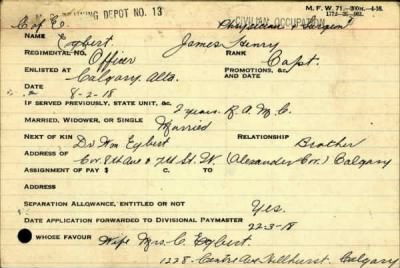 M. F. W. 71
TRAINING DEPOT NO. 13
C of E. Physician & Surgeon
CIVILIAN OCCUPATION
NAME Egbert James Henry
REGIMENTAL NO. Officer RANK Capt.
ENLISTED AT Calgary Alta. PROMOTIONS, &c.
DATE 8-2-18 AND DATE
IF SERVED PREVIOUSLY, STATE UNIT, &c. 2 years. R.A.M.C.
MARRIED, WIDOWER, OR SINGLE Married
NEXT OF KIN Dr Wm Egbert RELATIONSHIP Brother
ADDRESS OF Cor. 8th Ave & 7th St. W. (Alexander Cor.) Calgary
ASSIGNMENT OF PAY $ C. TO
ADDRESS OF
SEPARATION ALLOWANCE, ENTITLED OR NOT Yes.
DATE APPLICATION FORWARDED TO DIVISIONAL PAYMASTER 22-3-18
WHOSE FAVOUR Wife Mrs. C. Egbert.
1228- Centre Ave Hillhurst, Calgary